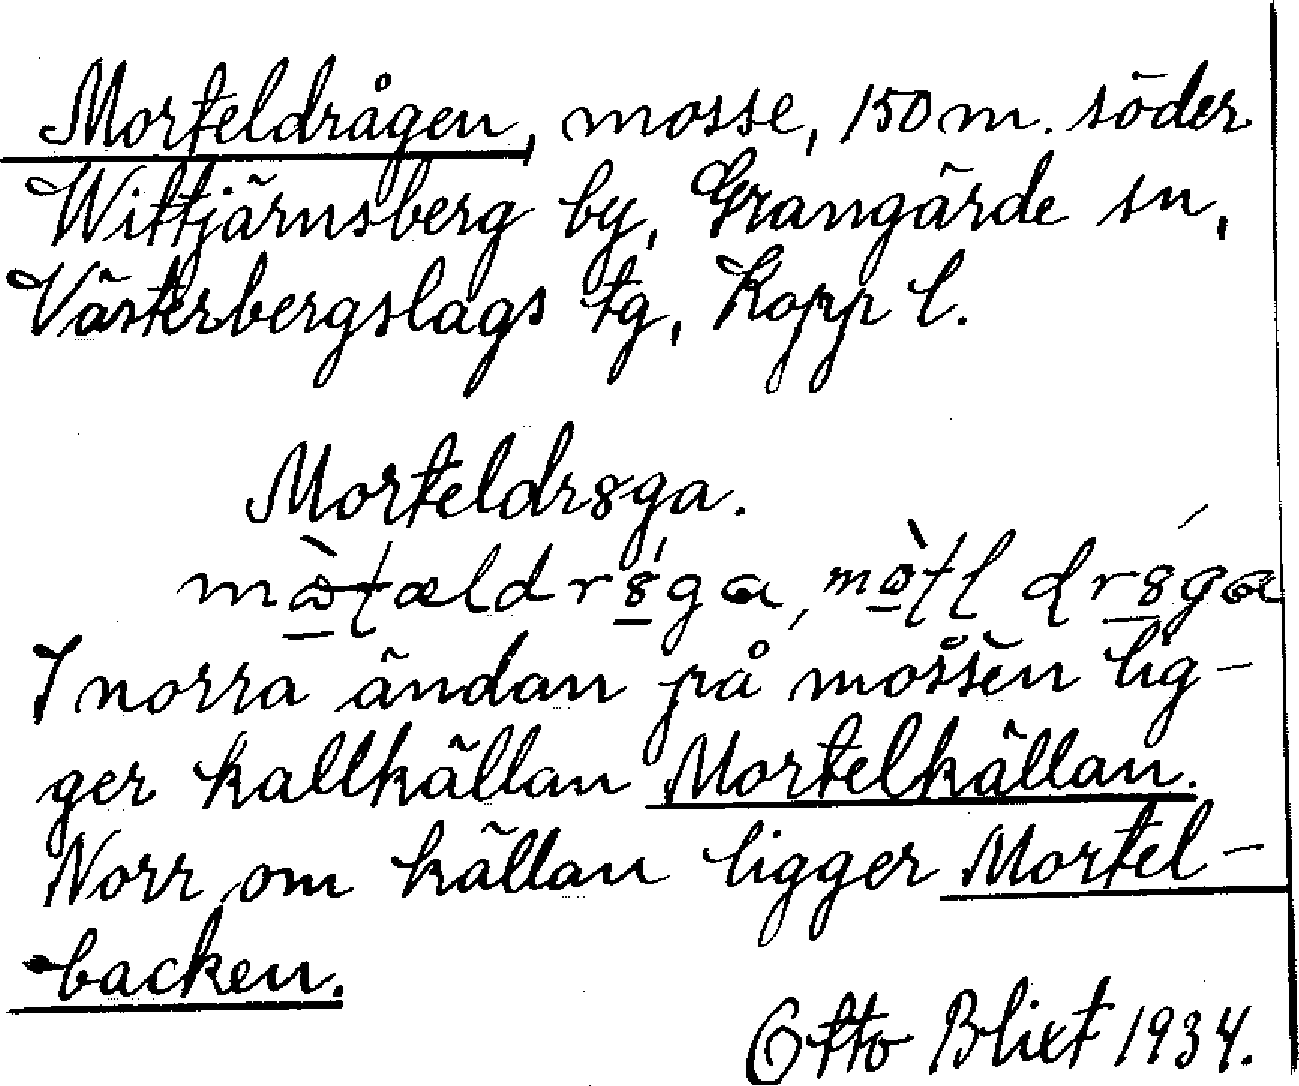 Morteldrågen, mosse, 150 m. söder
Wittjärnsberg by, Grangärde sn,
Västerbergslags tg, Kopp l.
Morteldr8ga.
I norra ändan på mossen lig-
ger kallkällan Mortelkällan.
Norr om källan ligger Mortel-
backen.
Otto Blixt 1934.